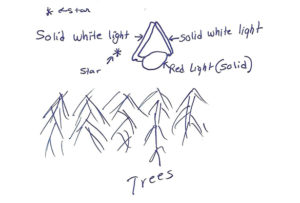 * ← star
Solid white light → ← solid white light
star ↗ *
Red Light (solid)
Trees